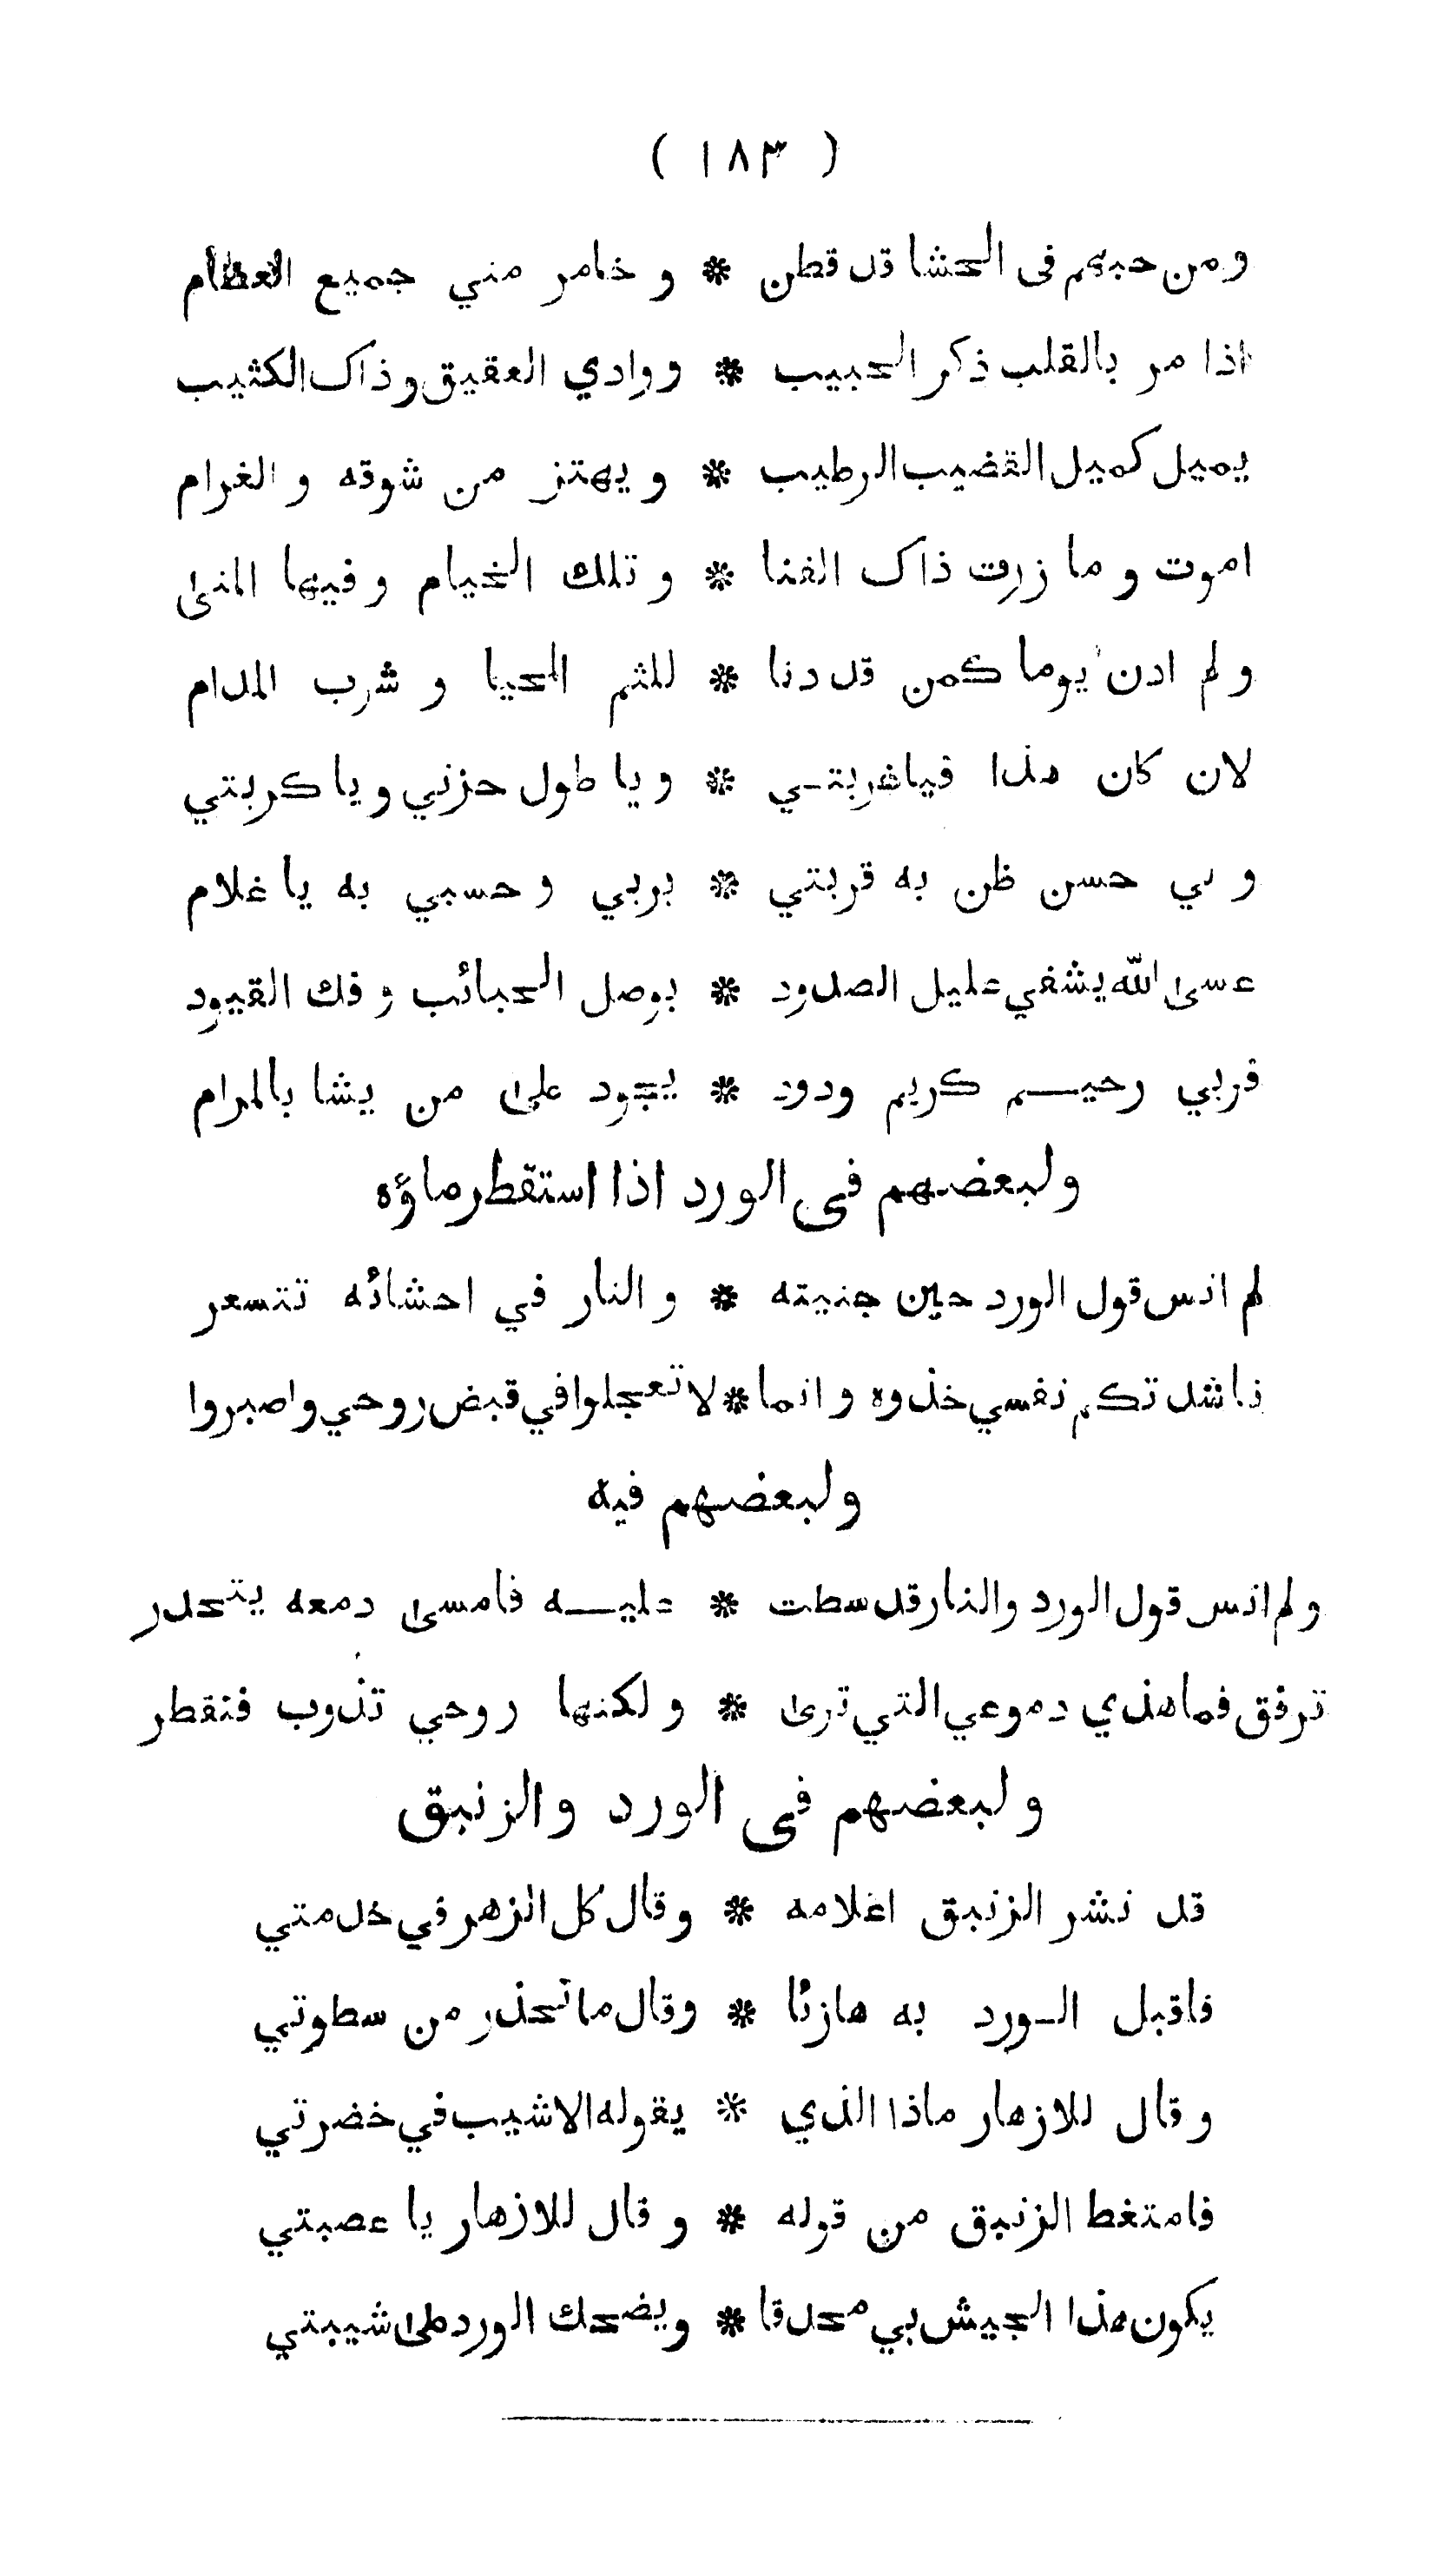 ( ١٨٣ )
ومن حبهم فى الحشا قد قطن * و خامر مني جميع العظام
اذا مر بالقلب ذكر الحبيب * ووادي العقيق وذاك الكثيب
يميل كميل القضيب الرطيب * ويهتز من شوقه و الغرام
اموت وما زرت ذاك الفنا * وتلك الخيام وفيها المنى
ولم ادن يوما كمن قد دنا * للثم المحيا و شرب المدام
لان كان هذا فياغربتي * ويا طول حزني ويا كربتي
و لي حسن ظن به قربتي * بربي و حسبي به يا غلام
عسى الله يشفي عليل الصدود * بوصل الحبائب و فك القيود
فربي رحيم كريم ودود * يجود على من يشا بالمرام
ولبعضهم فى الورد اذا استقطر ماؤه
لم انس قول الورد حين جنيته * والنار في احشائه تتسعر
ناشدتكم نفسي خذوه وانما * لا تعجلوا في قبض روحي واصبروا
ولبعضهم فيه
ولم انس قول الورد والنار قد سطت * عليه فامسى دمعه يتحدر
ترفق فما هذي دموعي التي ترى * ولكنها روحي تذوب فتقطر
ولبعضهم فى الورد والزنبق
قد نشر الزنبق اغلامه * وقال كل الزهر في خدمتي
فاقبل الورد به هازئا * وقال ما تحذر من سطوتي
وقال للازهار ماذا الذي * يقوله الاشيب في خضرتي
فامتغط الزنبق من قوله * وقال للازهار يا عصبتي
يكون هذا الجيش بي محدقا * ويضحك الورد على شيبتي